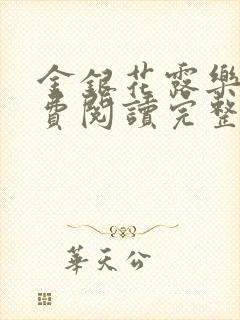 金銀花露樂
費閱讀完整
華天公